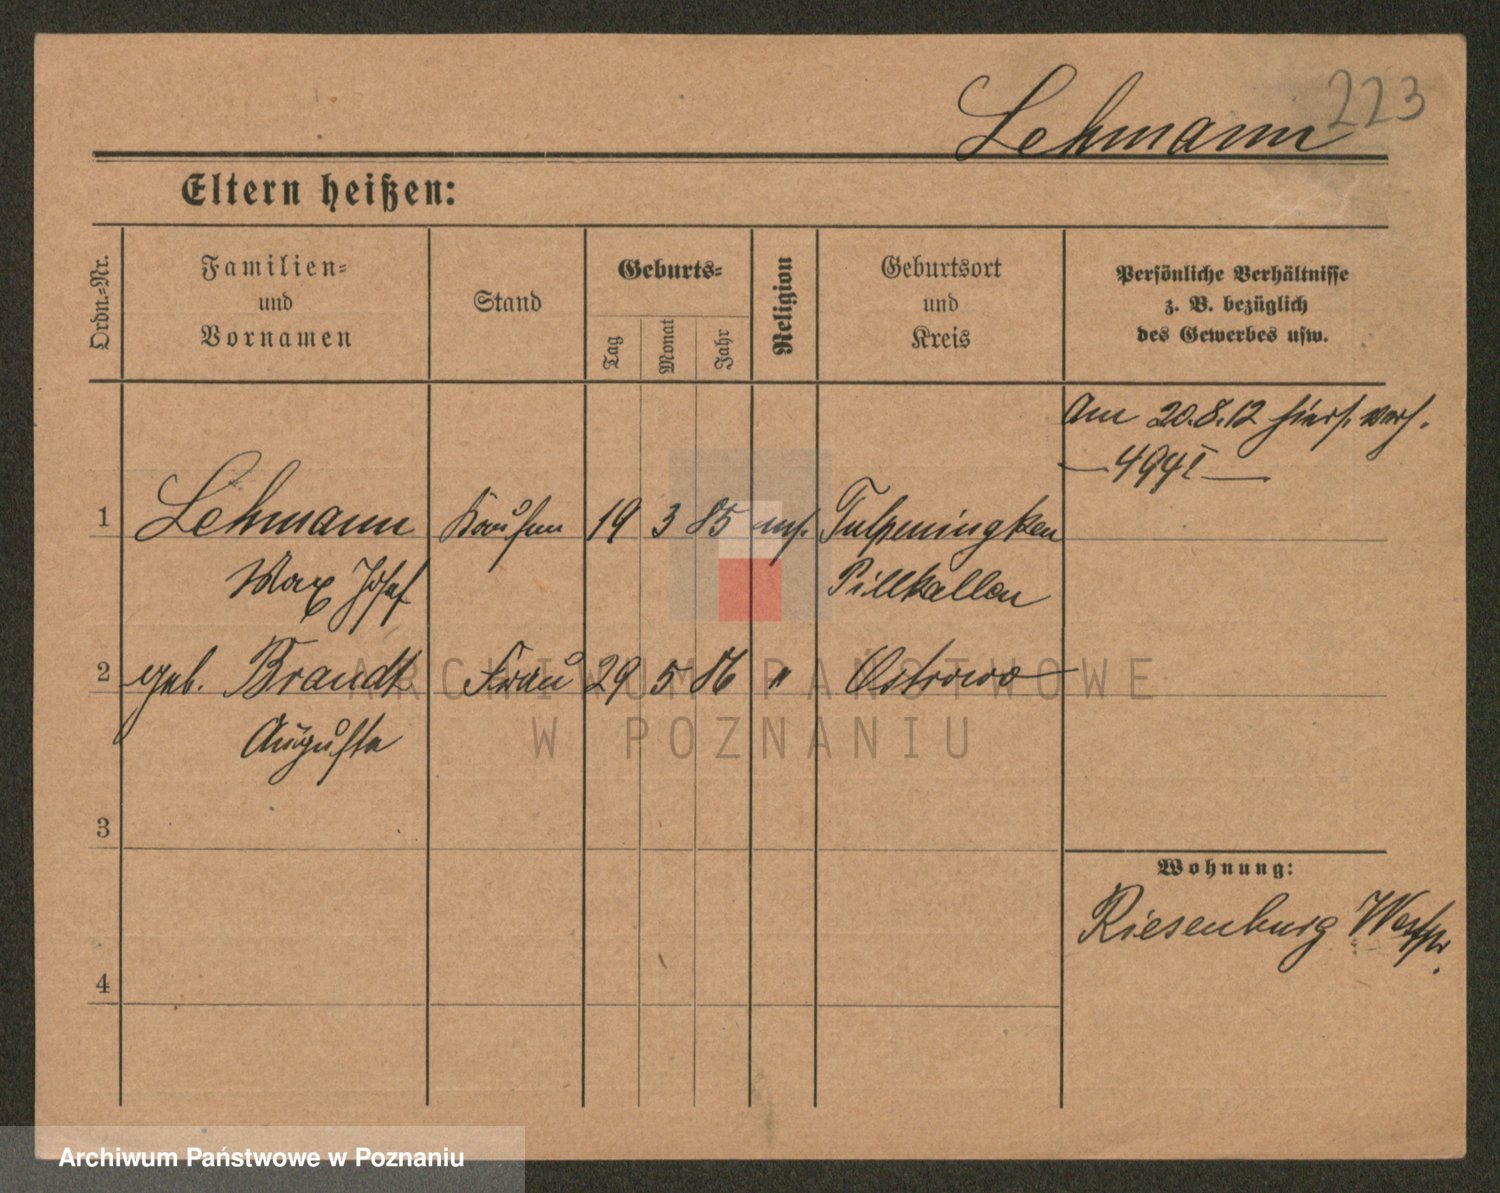 223
Lehmann
Eltern heißen:
Ordn.-Nr.
Familien-
und
Vornamen
Stand
Geburts-
Tag
Monat
Jahr
Religion
Geburtsort
und
Kreis
Persönliche Verhältnisse
z. B. bezüglich
des Gewerbes usw.
Am 20.8.12 hiers. verh.
1 Lehmann Kaufm 19 3 85
Max Josef Pillkallen
2 geb. Brandt Frau 29 5 86 " Ostrowo
Auguste
3
4
Wohnung:
Riesenburg Westpr.
ARCHIWUM PAŃSTWOWE
W POZNANIU
Archiwum Państwowe w Poznaniu